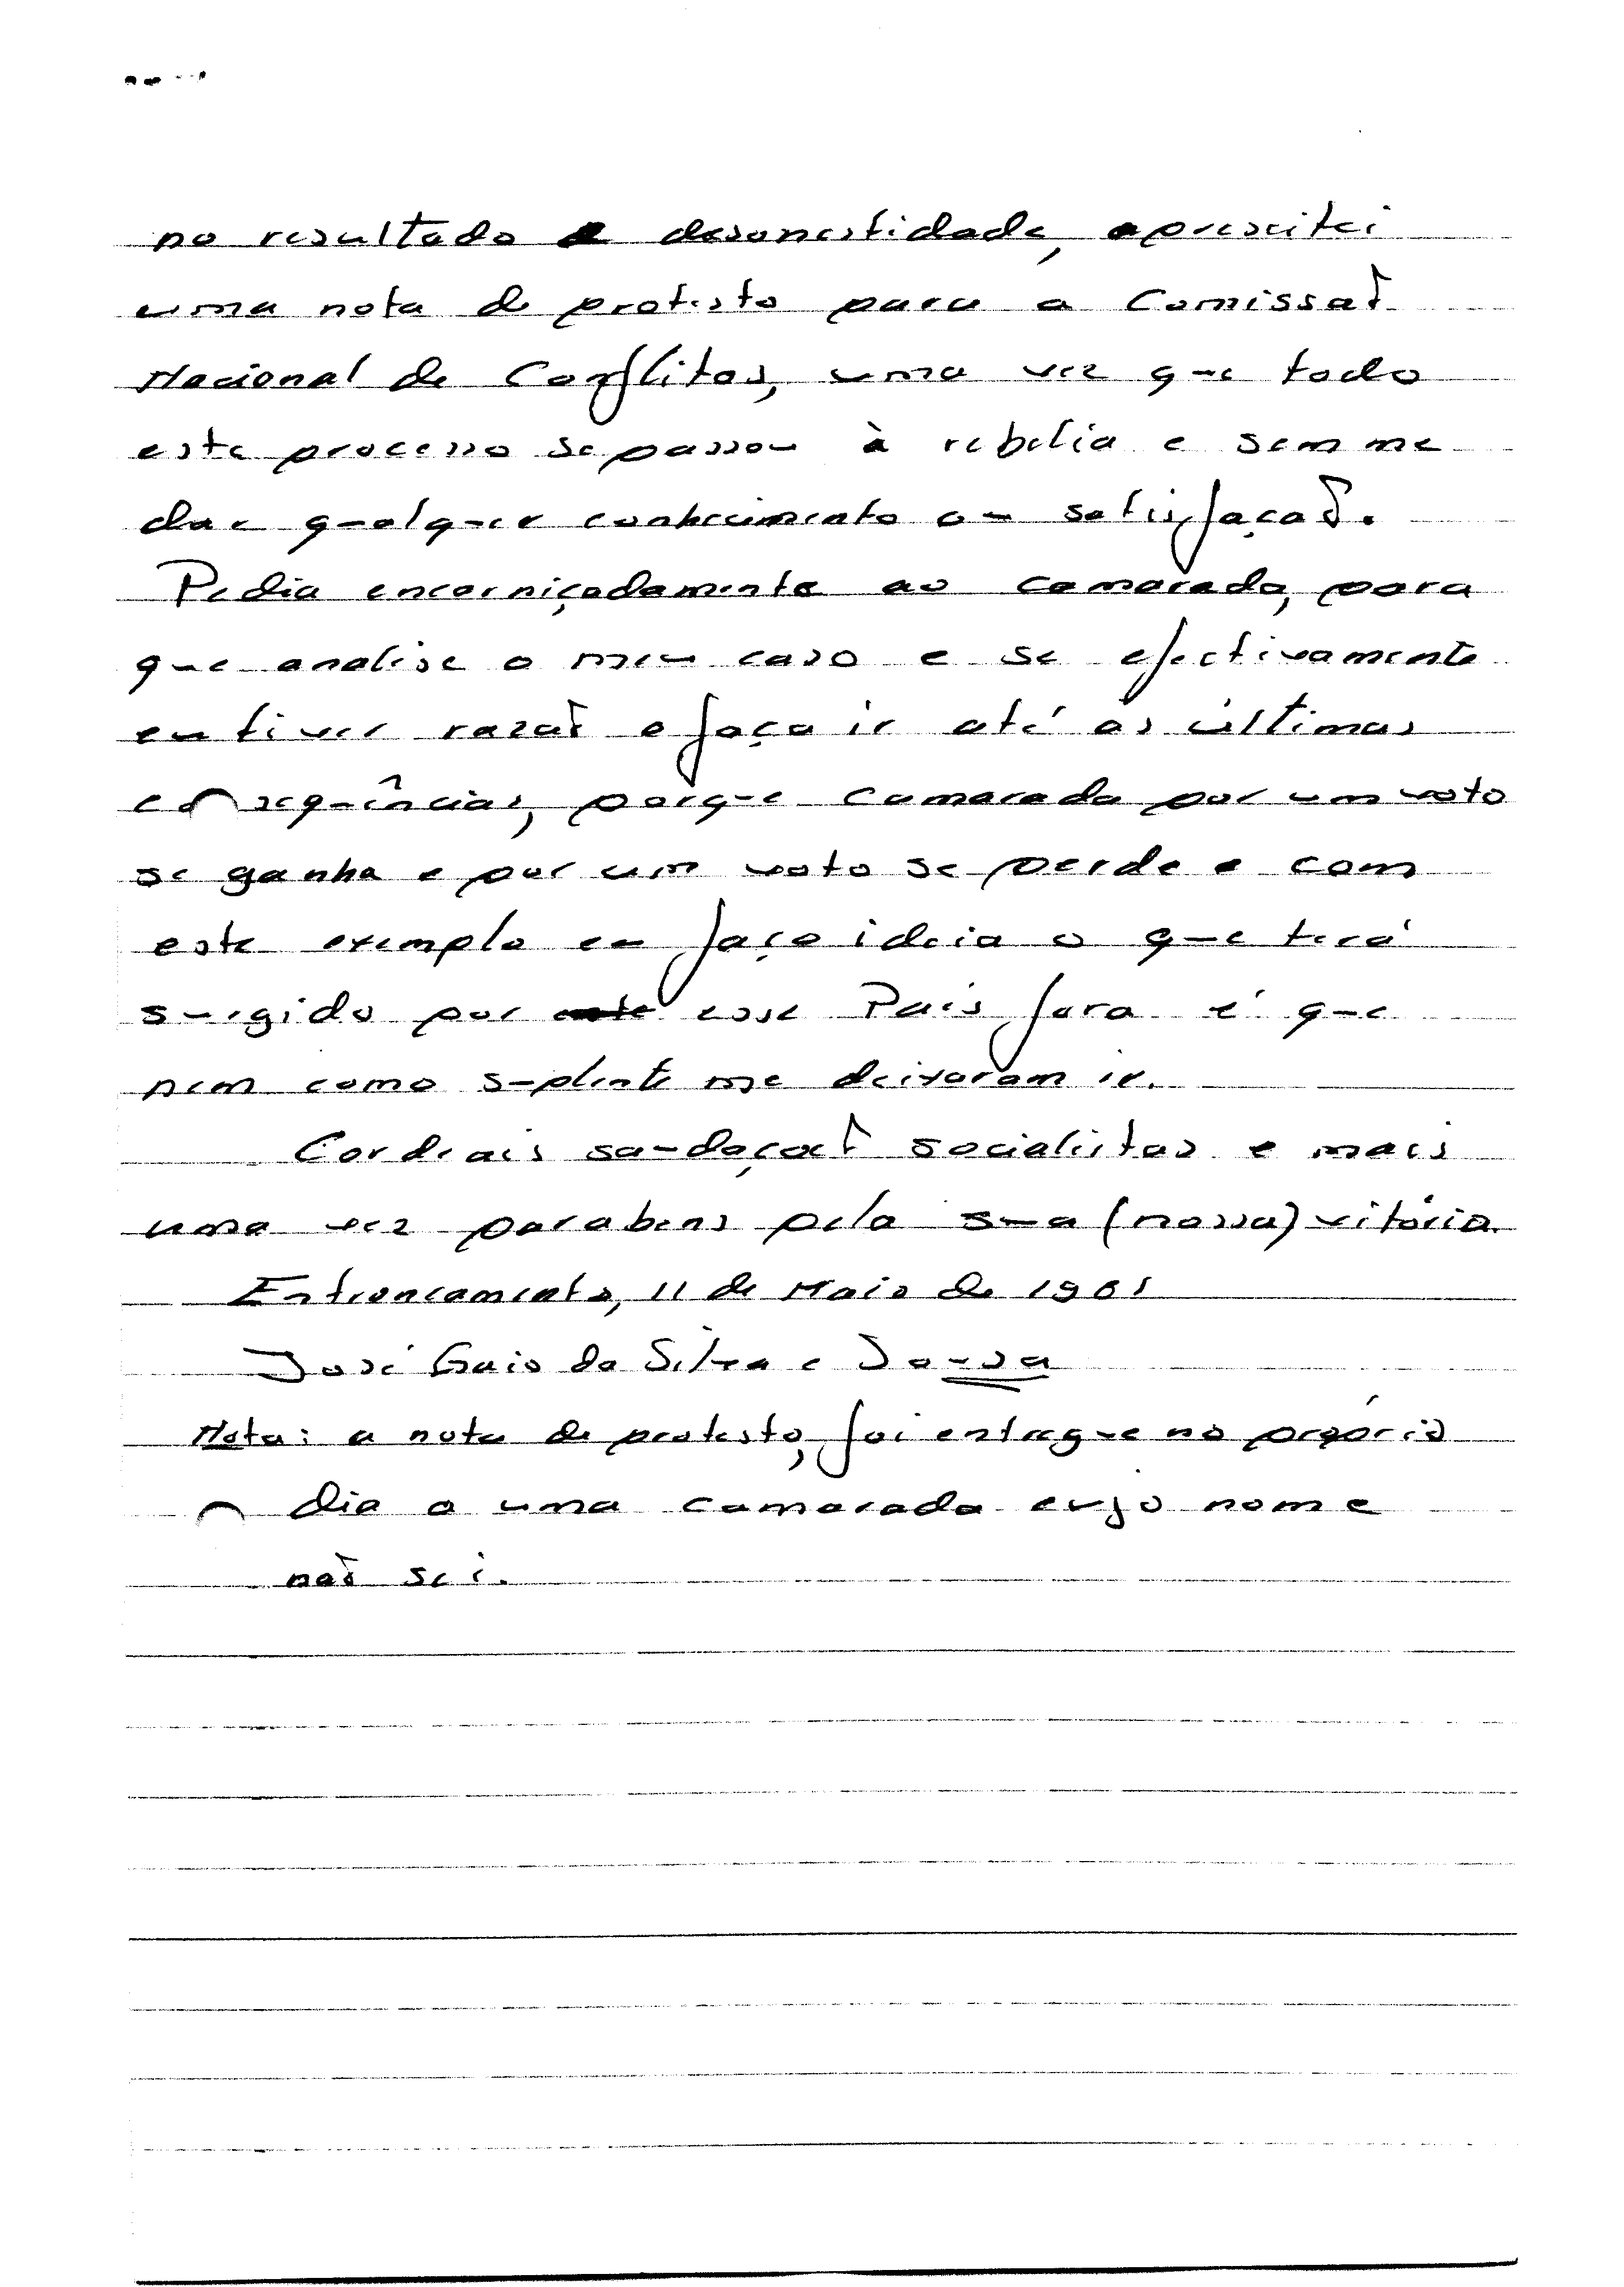 no resultado e desonestidade, apresentei
uma nota de protesto para a Comissaõ
Nacional de Conflitos, uma vez que todo
este processo se passou à rebelia e sem me
dar qualquer conhecimento ou satisfaçaõ.
Pedia encarniçadamente ao camarada, para
que analise o meu caso e se efectivamente
eu tiver razaõ o faça ir até às últimas
consequências, porque camarada por um voto
se ganha e por um voto se perde e com
este exemplo eu faço ideia o que terá
surgido por esse Pais fora é que
nem como suplente me deixaram ir.
Cordeais saudaçoẽs socialistas e mais
uma vez parabens pela sua (nossa) vitória.
Entroncamento, 11 de Maio de 1981
José Gaio da Silva e Sousa
Nota: a nota de protesto, foi entregue no próprio
dia a uma camarada cujo nome
naõ sei.